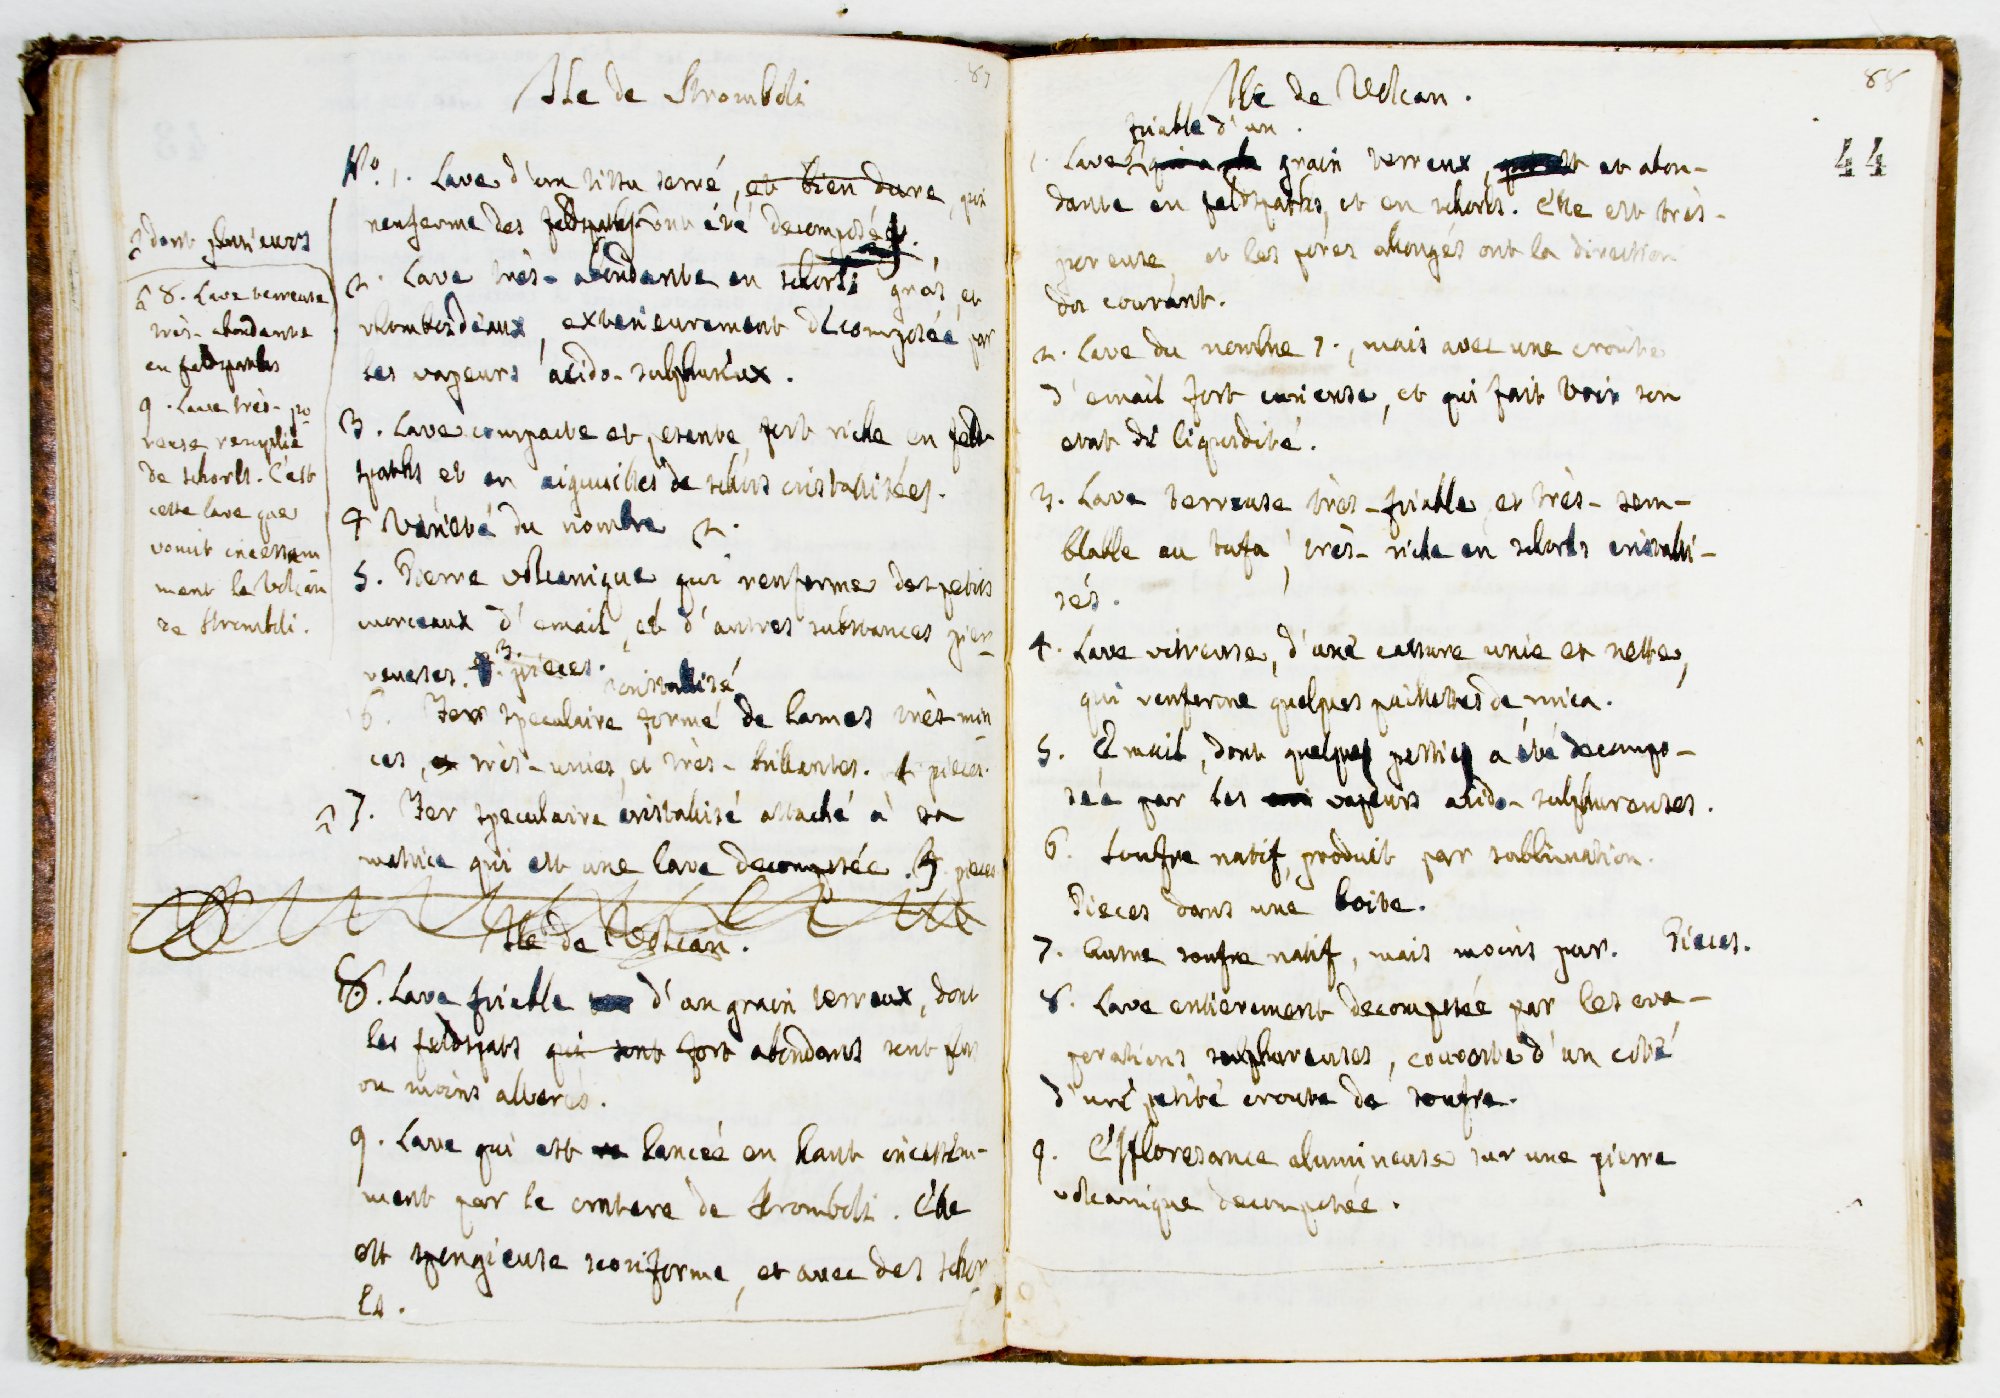 87
Isle de Stromboli
No. 1. Lave d'un tissu serré, et bien dure, qui
renferme des feldspaths ont été decomposés.
2. Lave très-abondante en schorls gros, et
rhomboideaux, exterieurement décomposée par
les vapeurs acido-sulphureux.
3. Lave compacte et pesante, fort riche en feld
spaths et en aiguilles de schorls cristallisées.
4 Varieté du nombre 2.
5. Pierre volcanique qui renferme des petits
morceaux d'email, et d'autres substances pier-
reuses. 3. pieces.
cristallisé
6. Fer speculaire formé de lames très-min
ces, et très-unies, et très-brillantes. pieces.
7. Fer speculaire cristallisé attaché à sa
matrice qui est une lave decomposée. 3. pieces
Isle de Volcan.
8. Lave friable d'un grain terreux, dont
les feldspats qui sont fort abondans sont plus
ou moins alterés.
9. Lave qui est lancée en haut incessem-
ment par le cratere de Stromboli. Elle
est spongieuse scoriforme, et avec des schor
ls.
dont plusieurs
8. Lave terreuse
très-abondante
en feldspaths
9. Lave très-po-
reuse remplie
de schorls. C'est
cette lave que
vomit incessam
ment le Volcan
de Stromboli.
88
44
Isle de Volcan.
friable d'un
1. Lave qui a grain terreux, et abon-
dante en feldspaths, et en schorls. Elle est très-
poreuse, et les pores alongés ont la direction
du courant.
2. Lave du nombre 1., mais avec une croute
d'email fort curieuse, et qui fait voir son
etat de liquidité.
3. Lave terreuse très-friable, et très-sem-
blable au tufa, très-riche en schorls cristalli-
sés.
4. Lave vitreuse, d'une cassure unie et nette,
qui renferme quelques paillettes de mica.
5. Email, dont quelques parties a été decompo-
sée par les vapeurs acido-sulphureuses.
6. Soufre natif, produit par sublimation.
Pieces dans une boite.
7. Autre soufre natif, mais moins pur. Pieces.
8. Lave entierement decomposée par les eva-
porations sulphureuses, couverte d'un coté
d'une petite croute de soufre.
9. Efflorescence alumineuse sur une pierre
volcanique decomposée.